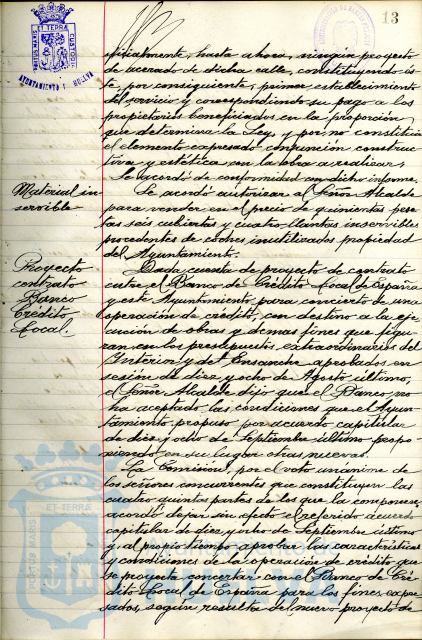 13
PORTUS MARIS ET TERRÆ CUSTODIA
AYUNTAMIENTO HUELVA
oficialmente, hasta ahora, ningún proyecto
de acerado de dicha calle, constituyendo és
te, por consiguiente, primer establecimiento
del servicio y correspondiendo su pago a los
propietarios beneficiados en la proporción
que determina la Ley, y por no constituir
el elemento expresado conjunción construc-
tiva y estética con la obra a realizar,
Se acordó de conformidad con dicho informe.
Material in
servible
Se acordó autorizar al Señor Alcalde
para vender en el precio de quinientas pese
tas seis cubiertas y cuatro llantas inservibles
procedentes de coches inutilizados propiedad
del Ayuntamiento.
Proyecto
contrato
Banco
Crédito
Local.
Dada cuenta de proyecto de contrato
entre el Banco de Crédito Local de España
y este Ayuntamiento para concierto de una
operación de crédito, con destino a la eje
cución de obras y demas fines que figu
ran en los presupuestos extraordinarios del
Interior y del Ensanche aprobados en
sesión de diez y ocho de Agosto último,
el Señor Alcalde dijo que el Banco no
ha aceptado las condiciones que el Ayun
tamiento propuso por acuerdo capitular
de diez y ocho de Septiembre último propo-
niendo en su lugar otras nuevas.
La Comisión, por el voto unánime de
los señores concurrentes que constituyen las
cuatro quintas partes de los que la componen,
acordó dejar sin efecto el referido acuerdo
capitular de diez y ocho de Septiembre último
y al propio tiempo aprobar las características
y condiciones de la operación de crédito que
se proyecta concertar con el Banco de Cré
dito Local de España para los fines expre
sados, según resulta del nuevo proyecto de